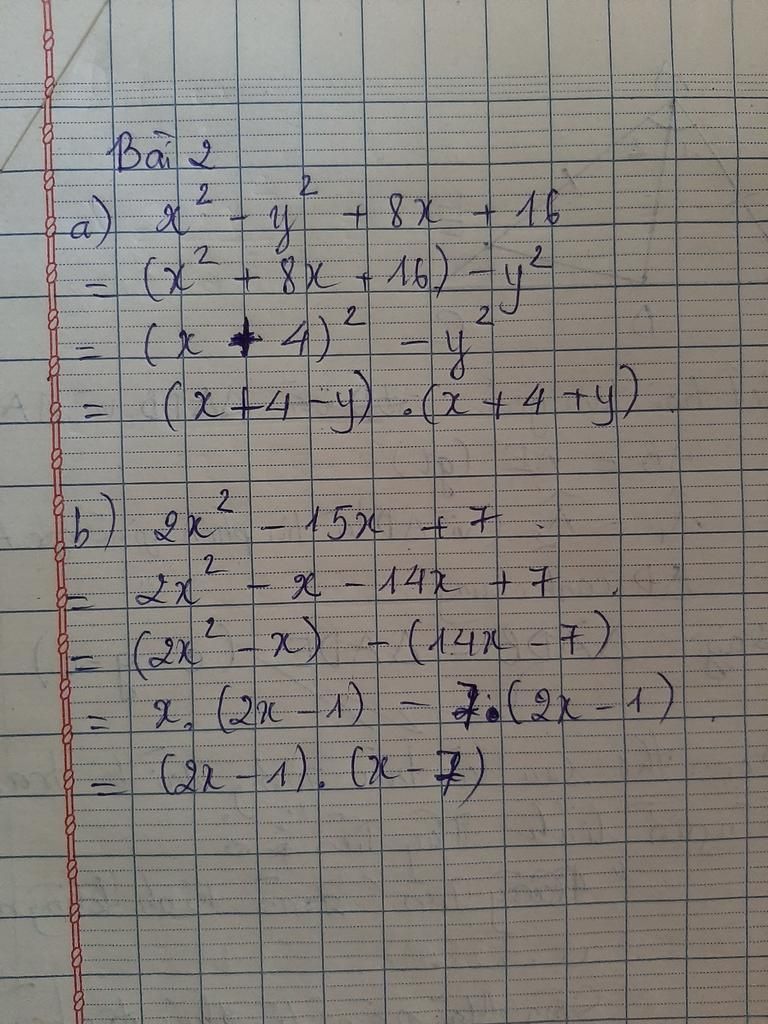 Bài 2
a) x² - y² + 8x + 16
= (x² + 8x + 16) - y²
= (x + 4)² - y²
= (x + 4 - y) . (x + 4 + y)
b) 2x² - 15x + 7
= 2x² - x - 14x + 7
= (2x² - x) - (14x - 7)
= x. (2x - 1) - 7.(2x - 1)
= (2x - 1) . (x - 7)